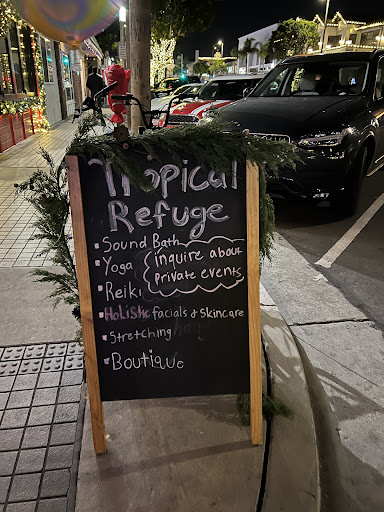 Tropical
Refuge
• Sound Bath
• Yoga
inquire about
Private events
• Reiki
• Holistic facials & Skincare
• Stretching
• Boutique